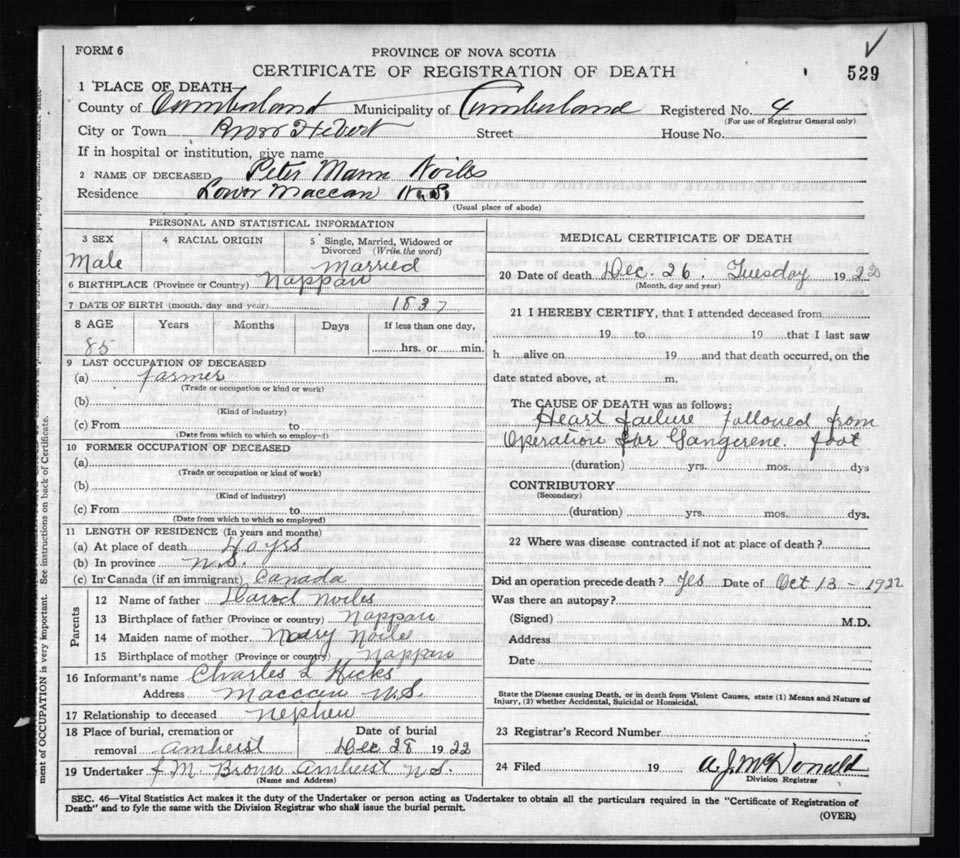 FORM 6
PROVINCE OF NOVA SCOTIA
CERTIFICATE OF REGISTRATION OF DEATH
529
1 PLACE OF DEATH
County of Cumberland Municipality of Cumberland Registered No. 4
(For use of Registrar General only)
City or Town Hebert Street House No.
If in hospital or institution, give name
2 NAME OF DECEASED Peter Mann Noiles
Residence Lower Maccan N.S.
(Usual place of abode)
PERSONAL AND STATISTICAL INFORMATION
3 SEX 4 RACIAL ORIGIN 5 Single, Married, Widowed or Divorced (Write the word)
Male Married
6 BIRTHPLACE (Province or Country) Nappan
7 DATE OF BIRTH (month, day and year) 1837
8 AGE Years Months Days If less than one day,
85 hrs. or min.
9 LAST OCCUPATION OF DECEASED
(a) farmer
(Trade or occupation or kind or work)
(b)
(Kind of industry)
(c) From to
(Date from which to which so employed)
10 FORMER OCCUPATION OF DECEASED
(a)
(Trade or occupation or kind of work)
(b)
(Kind of industry)
(c) From to
(Date from which to which so employed)
11 LENGTH OF RESIDENCE (In years and months)
(a) At place of death yrs
(b) In province N.S.
(c) In Canada (if an immigrant) Canada
Parents
12 Name of father David Noiles
13 Birthplace of father (Province or country) Nappan
14 Maiden name of mother Mary Noiles
15 Birthplace of mother (Province or country) Nappan
16 Informant's name Charles L Hicks
Address Maccan N.S.
17 Relationship to deceased Nephew
18 Place of burial, cremation or removal Amherst Date of burial Dec 28 1922
19 Undertaker J M Brown Amherst N.S.
(Name and Address)
MEDICAL CERTIFICATE OF DEATH
20 Date of death Dec. 26, Tuesday 1922
(Month, day and year)
21 I HEREBY CERTIFY, that I attended deceased from
19 to 19 that I last saw
h alive on 19 and that death occurred, on the
date stated above, at m.
The CAUSE OF DEATH was as follows:
Heart failure followed from
Operation for Gangerene. foot
(duration) yrs. mos. dys
CONTRIBUTORY
(Secondary)
(duration) yrs. mos. dys.
22 Where was disease contracted if not at place of death?
Did an operation precede death? Yes Date of Oct 13 - 1922
Was there an autopsy?
(Signed) M.D.
Address
Date
State the Disease causing Death, or in death from Violent Causes, state (1) Means and Nature of
Injury, (2) whether Accidental, Suicidal or Homicidal.
23 Registrar's Record Number
24 Filed 19 A. J. McDonald
Division Registrar
SEC. 46—Vital Statistics Act makes it the duty of the Undertaker or person acting as Undertaker to obtain all the particulars required in the "Certificate of Registration of
Death" and to fyle the same with the Division Registrar who shall issue the burial permit.
(OVER)
ment of OCCUPATION is very important. See instructions on back of Certificate.